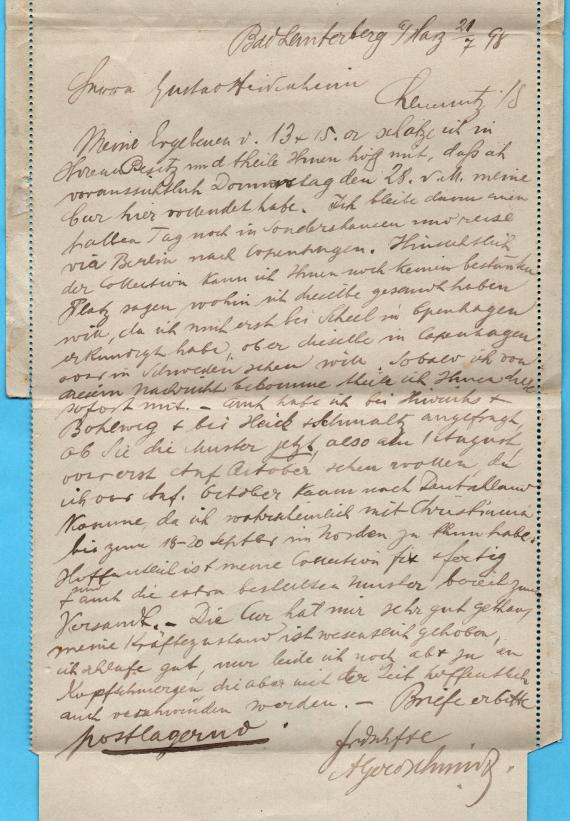 Bad Lauterberg a/Harz 21/7 98
Herrn Gustav Heidenheim
Chemnitz i/S
Meine Ergebenen v. 13 & 15. cr schätze ich in
Ihrem Besitz und theile Ihnen höfl mit, daß ich
voraussichtlich Donnerstag den 28. d. M. meine
Cur hier vollendet habe. Ich bleibe dann einen
halben Tag noch in Sondershausen und reise
via Berlin nach Copenhagen. Hinsichtlich
der Collection kann ich Ihnen noch keinen bestimmten
Platz sagen, wohin ich dieselbe gesandt haben
will, da ich mich erst bei Scheel in Copenhagen
erkundigt habe, ob er dieselbe in Copenhagen
oder in Schweden sehen will. Sobald ich von
diesem Nachricht bekomme theile ich Ihnen diese
sofort mit. – Auch habe ich bei Hinrichs &
Bohlweg & bei Heick & Schmaltz angefragt,
ob Sie die Muster jetzt, also am 1 August,
oder erst Anf October sehen wollen, da
ich vor Anf. October kaum nach Deutschland
komme, da ich wahrscheinlich mit Christiania
bis zum 18-20 Septbr im Norden zu thun habe.
Hoffentlich ist meine Collection fix & fertig
& auch die extra bestellten Muster bereit zum
Versandt. – Die Cur hat mir sehr gut gethan,
meine Kräftezustand ist wesentlich gehoben,
ich schlafe gut, nur leide ich noch ab & zu an
Kopfschmerzen, die aber mit der Zeit hoffentlich
auch verschwinden werden. – Briefe erbitte
postlagernd.
A Goldschmidt.